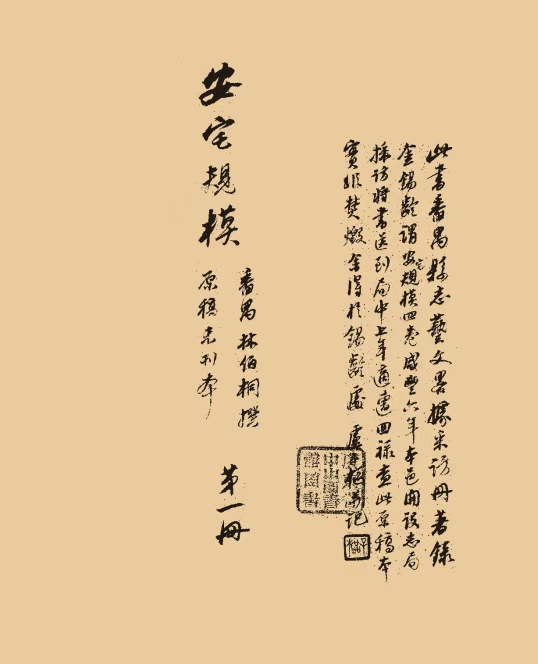 此書番禺縣志藝文畧據采訪冊著錄
金錫齡謂安宅規模四卷咸豐六年本邑開設志局
採訪將書送到局中上年適遭回祿查此原稿本
實非焚燬余得於錫齡處
安宅規模
番禺林伯桐撰
原稿未刊本
第一冊